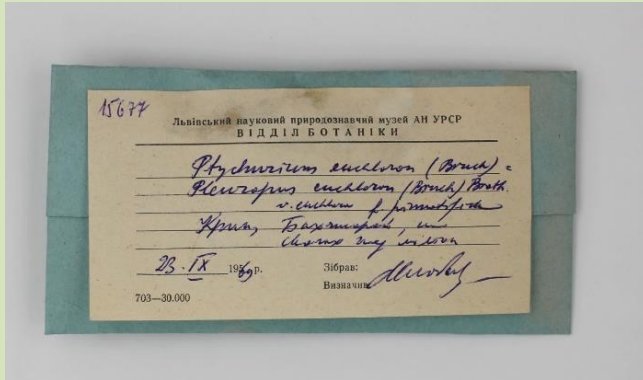 15677
Львівський науковий природознавчий музей АН УРСР
ВІДДІЛ БОТАНІКИ
euchloron (Bruch) =
Pleuropus euchloron (Bruch) Broth.
v. euchloron f.
Крим, Бахчисарай, на
23 · IX 1969 р.
Зібрав:
Визначив
703—30.000